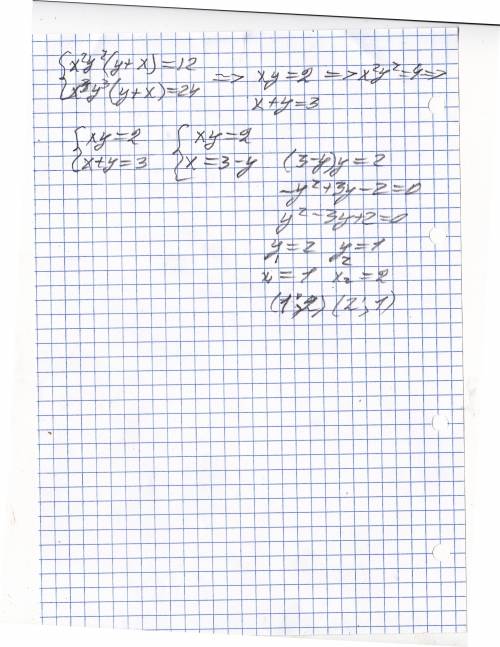 {x²y²(y+x)=12
{x³y³(y+x)=24 => xy=2 => x²y²=4 =>
x+y=3
{xy=2 {xy=2
{x+y=3 {x=3-y (3-y)y=2
-y²+3y-2=0
y²-3y+2=0
y₁=2 y₂=1
x₁=1 x₂=2
(1;2) (2;1)